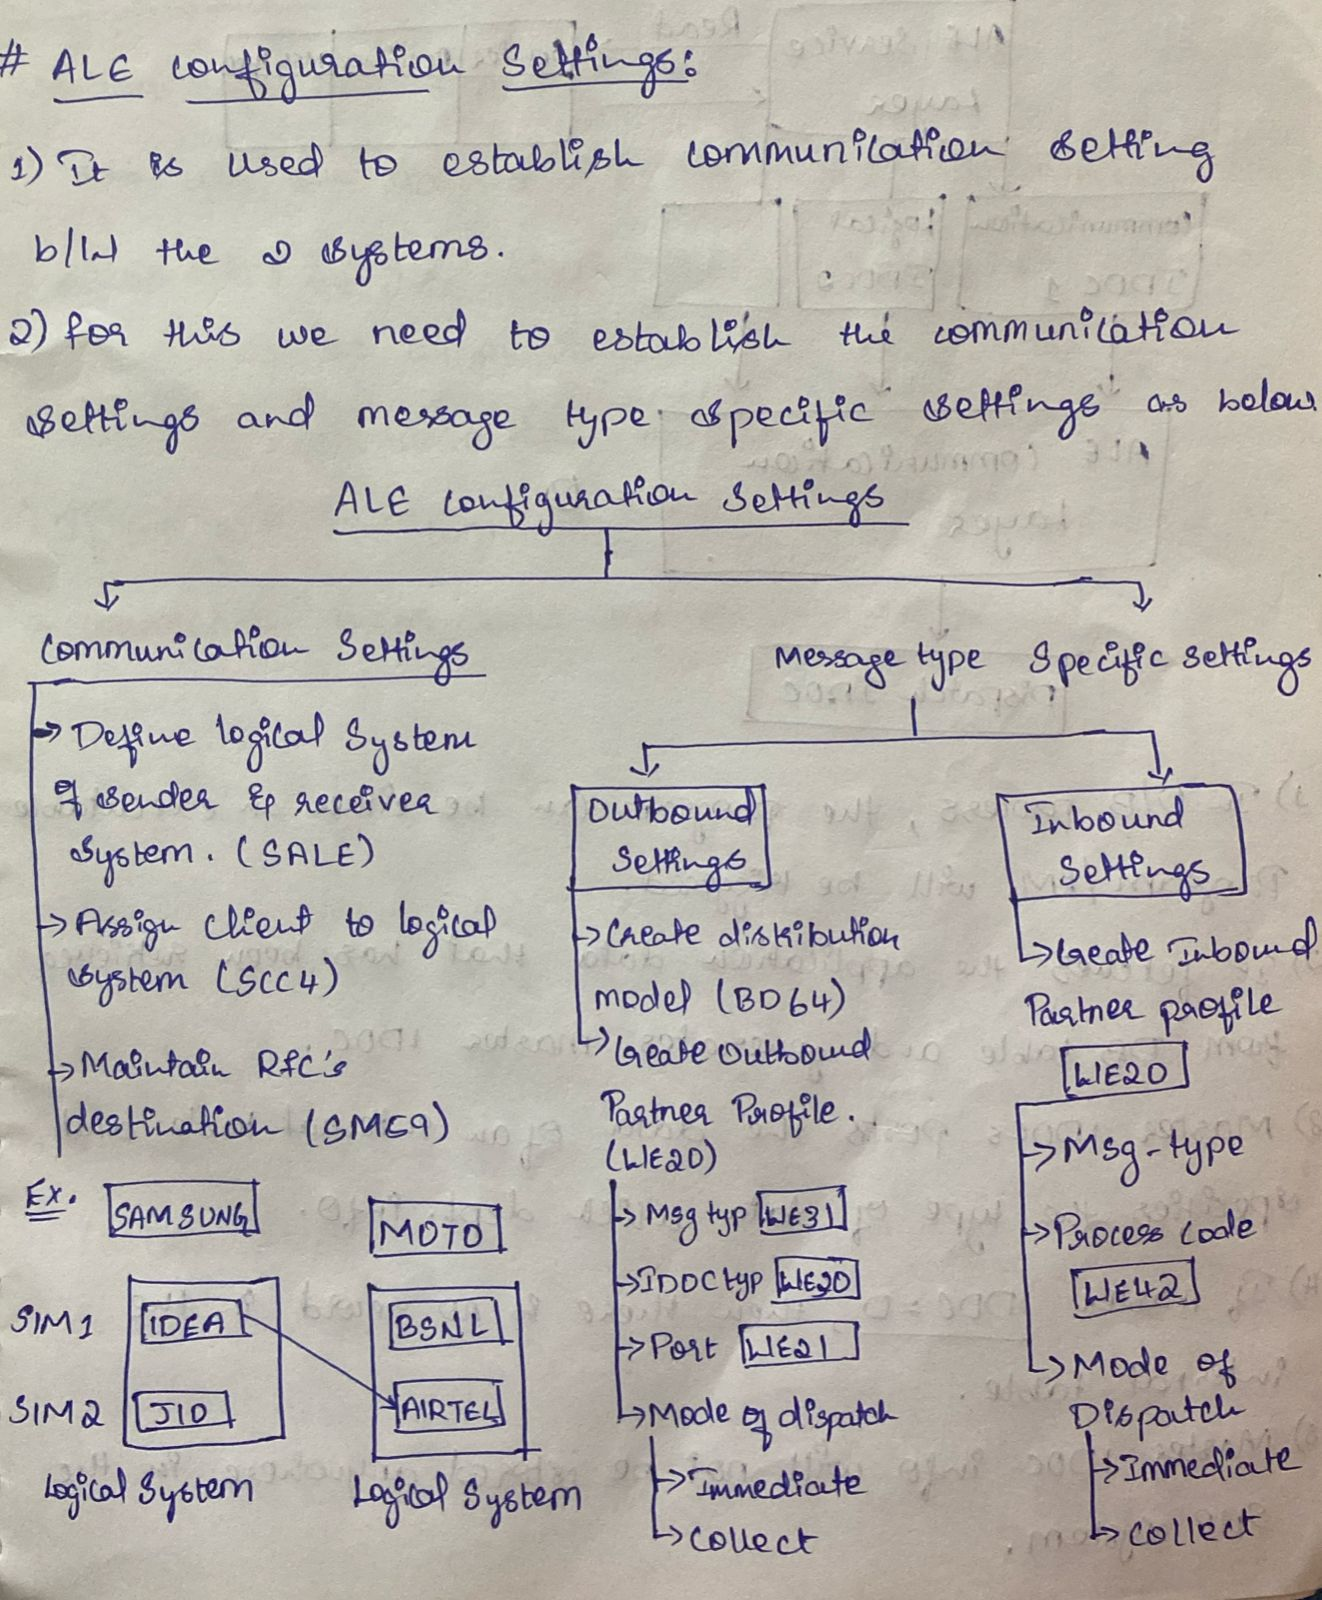 # ALE configuration Settings:
1) It is used to establish communication setting
b/w the 2 systems.
2) for this we need to establish the communication
settings and message type specific settings as below
ALE configuration Settings
Communication Settings
→ Define logical System
of sender & receiver
System. (SALE)
→ Assign client to logical
system (SCC4)
→ Maintain RFC's
destination (SM59)
Message type Specific settings
Outbound
Settings
→ Create distribution
model (BD64)
→ Create Outbound
Partner Profile.
(WE20)
→ Msg typ WE31
→ IDOC typ WE30
→ Port WE21
→ Mode of dispatch
→ Immediate
→ Collect
Inbound
Settings
→ Create Inbound
Partner profile
WE20
→ Msg-type
→ Process code
WE42
→ Mode of
Dispatch
→ Immediate
→ Collect
Ex.
SAMSUNG
MOTO
SIM1
IDEA
BSNL
SIM2
JIO
AIRTEL
Logical System
Logical System